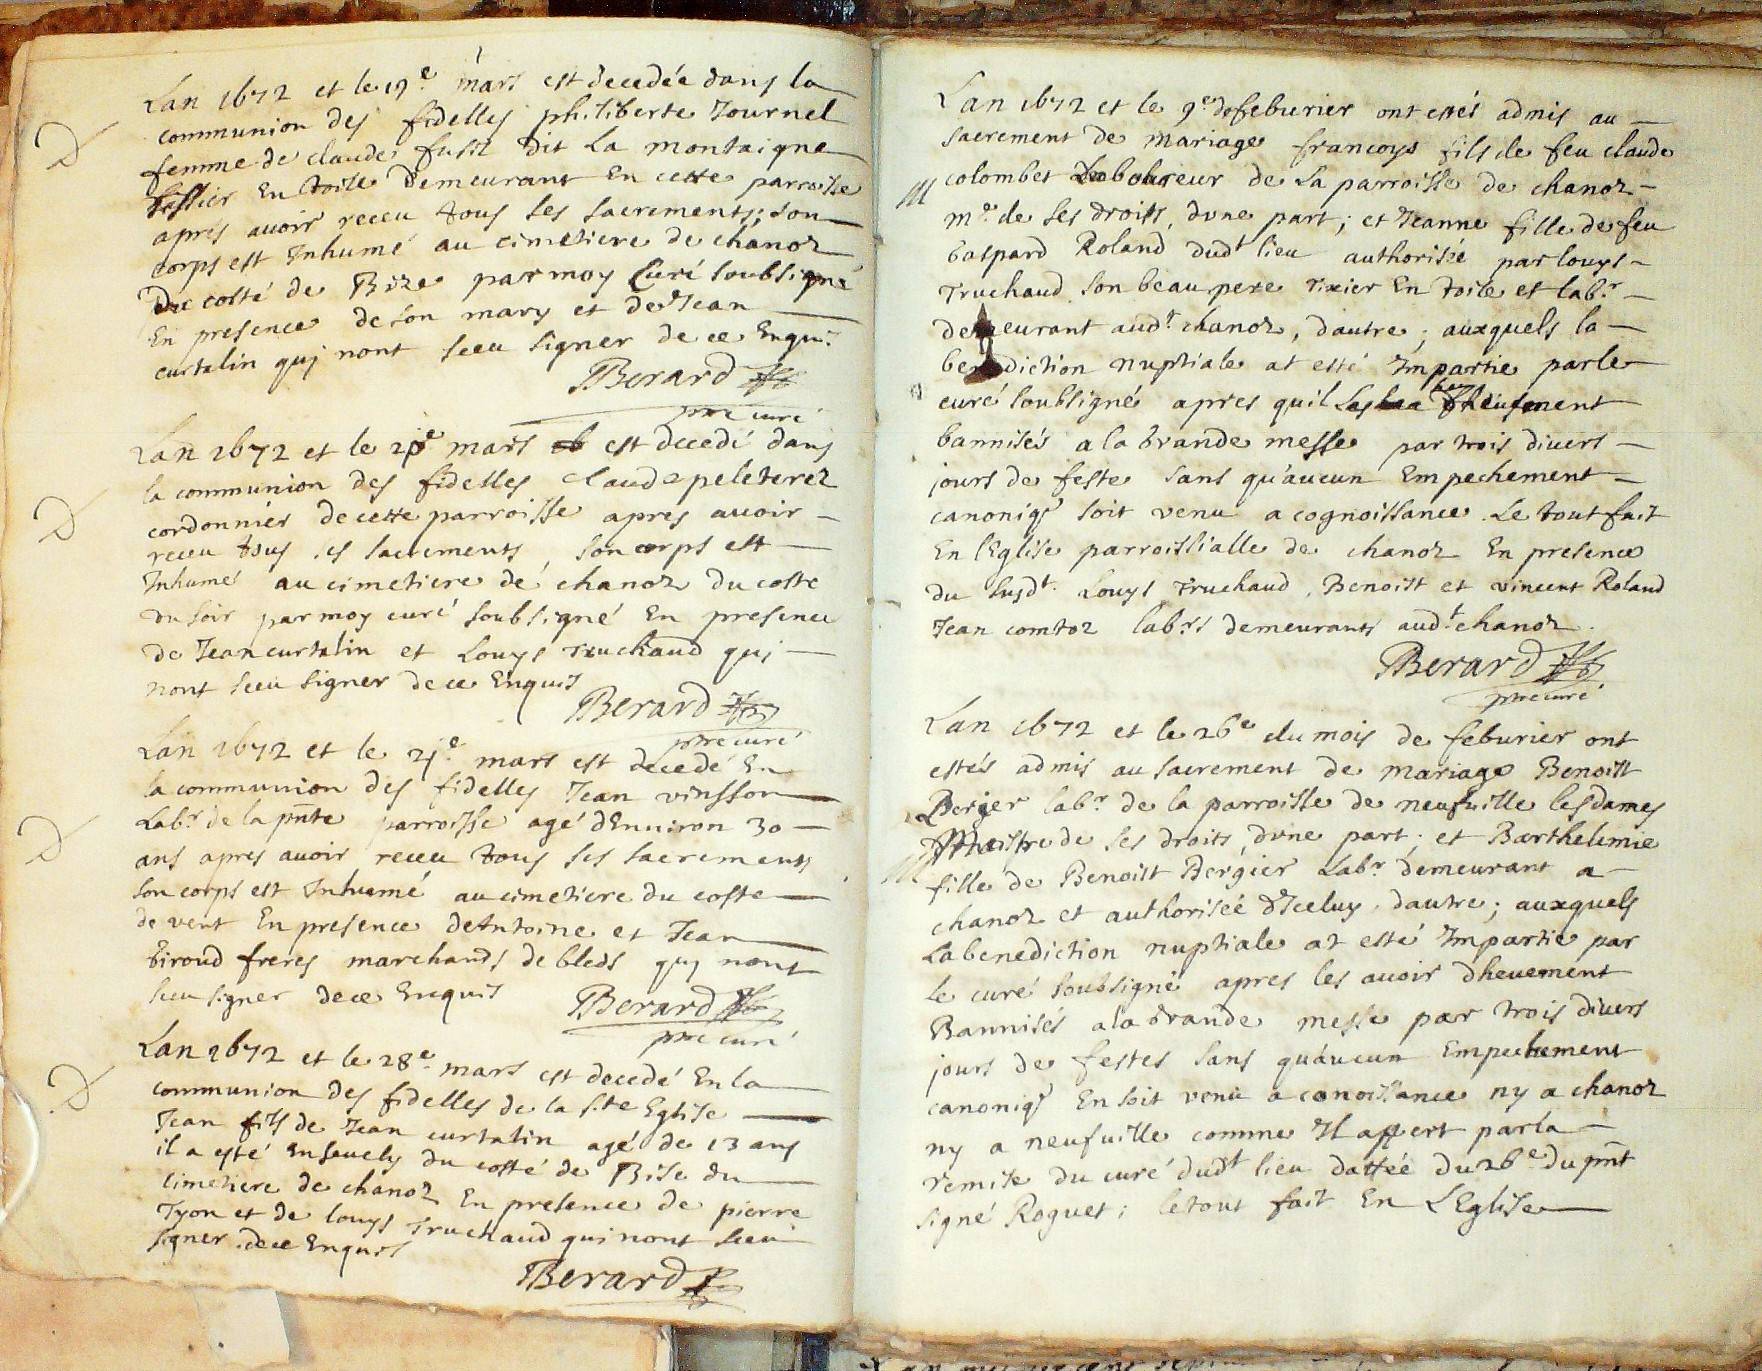 Lan 1672 et le 19e mars est decedée dans la
communion des fidelles philiberte Journel
femme de claude fusit dit La montaigne
en toile demeurant En cette parroisse
apres avoir receu tous les sacrements; son
corps est Inhumé au cimetiere de chanoz
Du costé de Bize par moy Curé soubsigné
En presence de son mary et de Jean
curtalin quj nont sceu signer de ce Enquis
Berard
ptre curé
D
Lan 1672 et le mars est decedé dans
la communion des fidelles Claude peleterez
cordonnier de cette parroisse apres avoir
receu tous ses sacrements, son corps est
Inhumé au cimetiere de chanoz du coste
du soir par moy curé soubsigné En presence
de Jean curtalin et Louys Truchaud quj
nont sceu signer de ce Enquis
Berard
ptre curé
D
Lan 1672 et le 21e mars est decedé En
la communion des fidelles Jean vinsson
Labr de la pnte parroisse agé dEnviron 30
ans apres avoir receu tous ses sacrements
son corps est Inhumé au cimetiere du coste
de vent En presence de Antoine et Jean
Giroud freres marchands de bleds quj nont
sceu signer de ce Enquis
Berard
ptre curé
D
Lan 1672 et le 28e mars est decedé En la
communion des fidelles de la Ste Eglise
Jean fils de Jean curtalin agé de 13 ans
il a esté Ensevely du costé de Bise du
Cimetiere de chanoz En presence de pierre
Tyon et de louys Truchaud qui nont sceu
signer de ce Enquis
Berard
D
Lan 1672 et le 9e de feburier ont estés admis au
sacrement de mariage francoys fils de feu claude
colombet Laboureur de la parroisse de chanoz
me de ses droits, dvne part; et Jeanne fille de feu
Gaspard Roland dudt lieu authorisée par louys
Truchaud son beau pere Tixier En toile et labr
demeurant audt chanoz, dautre; auxquels la
benediction nuptiale at esté Impartie par le
curé soubsigné apres quil
bannisés a la Grande messe par trois divers
jours de feste sans qu'aucun Empechement
canoniq soit venu a cognoissance. Le tout fait
En lEglise parroissialle de chanoz En presence
du susdt Louys Truchaud, Benoist et vincent Roland
Jean comtoz labrs demeurants audt chanoz
Berard
ptre curé
M
Lan 1672 et le 26e du mois de feburier ont
estés admis au sacrement de mariage Benoist
Berger labr de la parroisse de neufuille les dames
Maistre de ses droits, dvne part; et Barthelemie
fille de Benoist Bergier Labr demeurant a
chanoz et authorisée dIceluy, dautre; auxquels
La benediction nuptiale at esté Impartie par
le curé soubsigné apres les avoir dheuement
Bannisés a la Grande messe par trois divers
jours de festes sans qu'aucun Empechement
canoniq En soit venu a conoissance ny a chanoz
ny a neufuille comme Il appert par la
remise du curé dudt lieu dattée du 26e du pnt
signé Roguet; le tout fait En LEglise
M